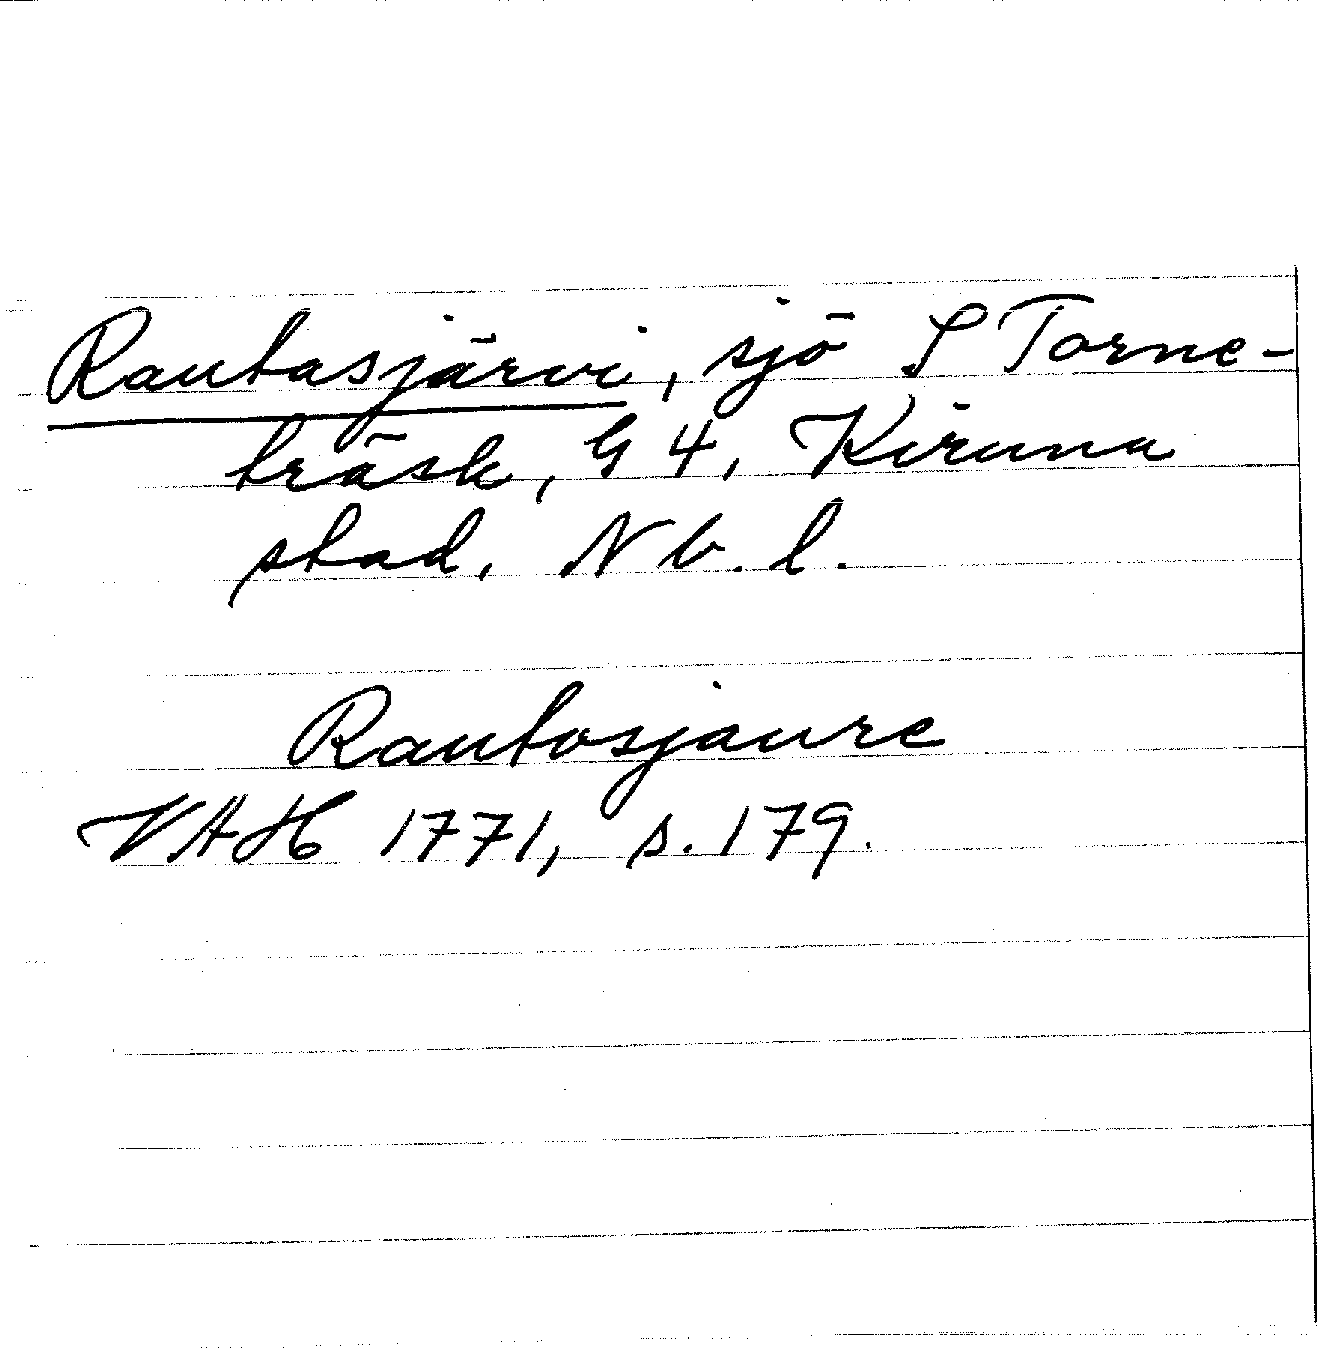 Rautasjärvi, sjö S Torne-
träsk, G 4, Kiruna
stad, Nb. l.
Rautosjaure
VAH 1771, s. 179.